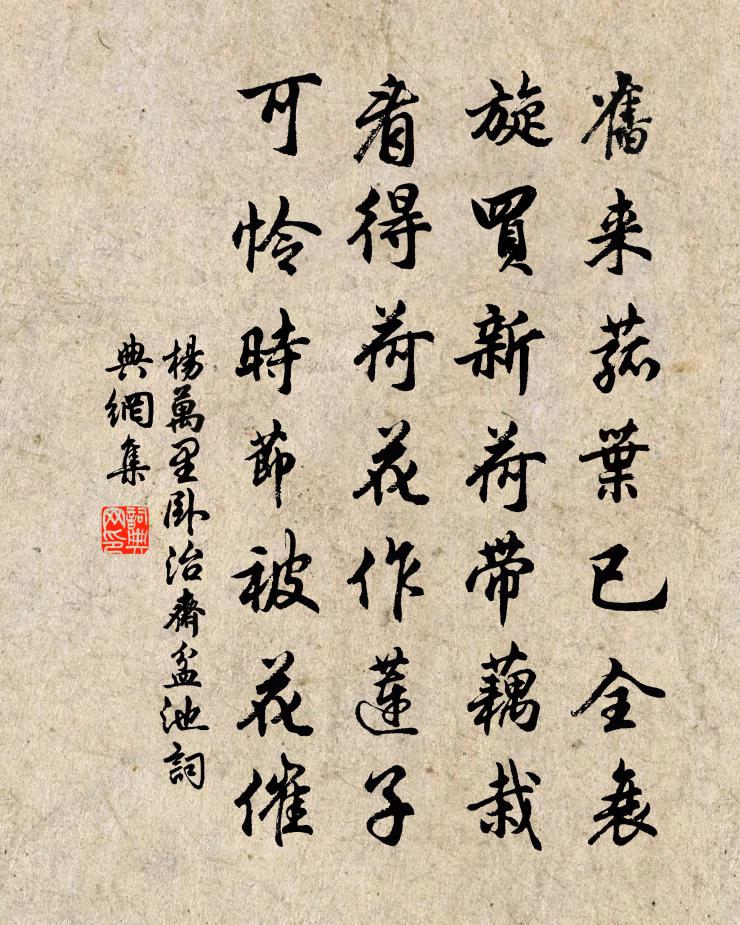 舊来菰葉已全衰
旋買新荷带藕栽
看得荷花作蓮子
可怜時節被花催
楊萬里卧治齋盆池詞
典網集
詞典网印